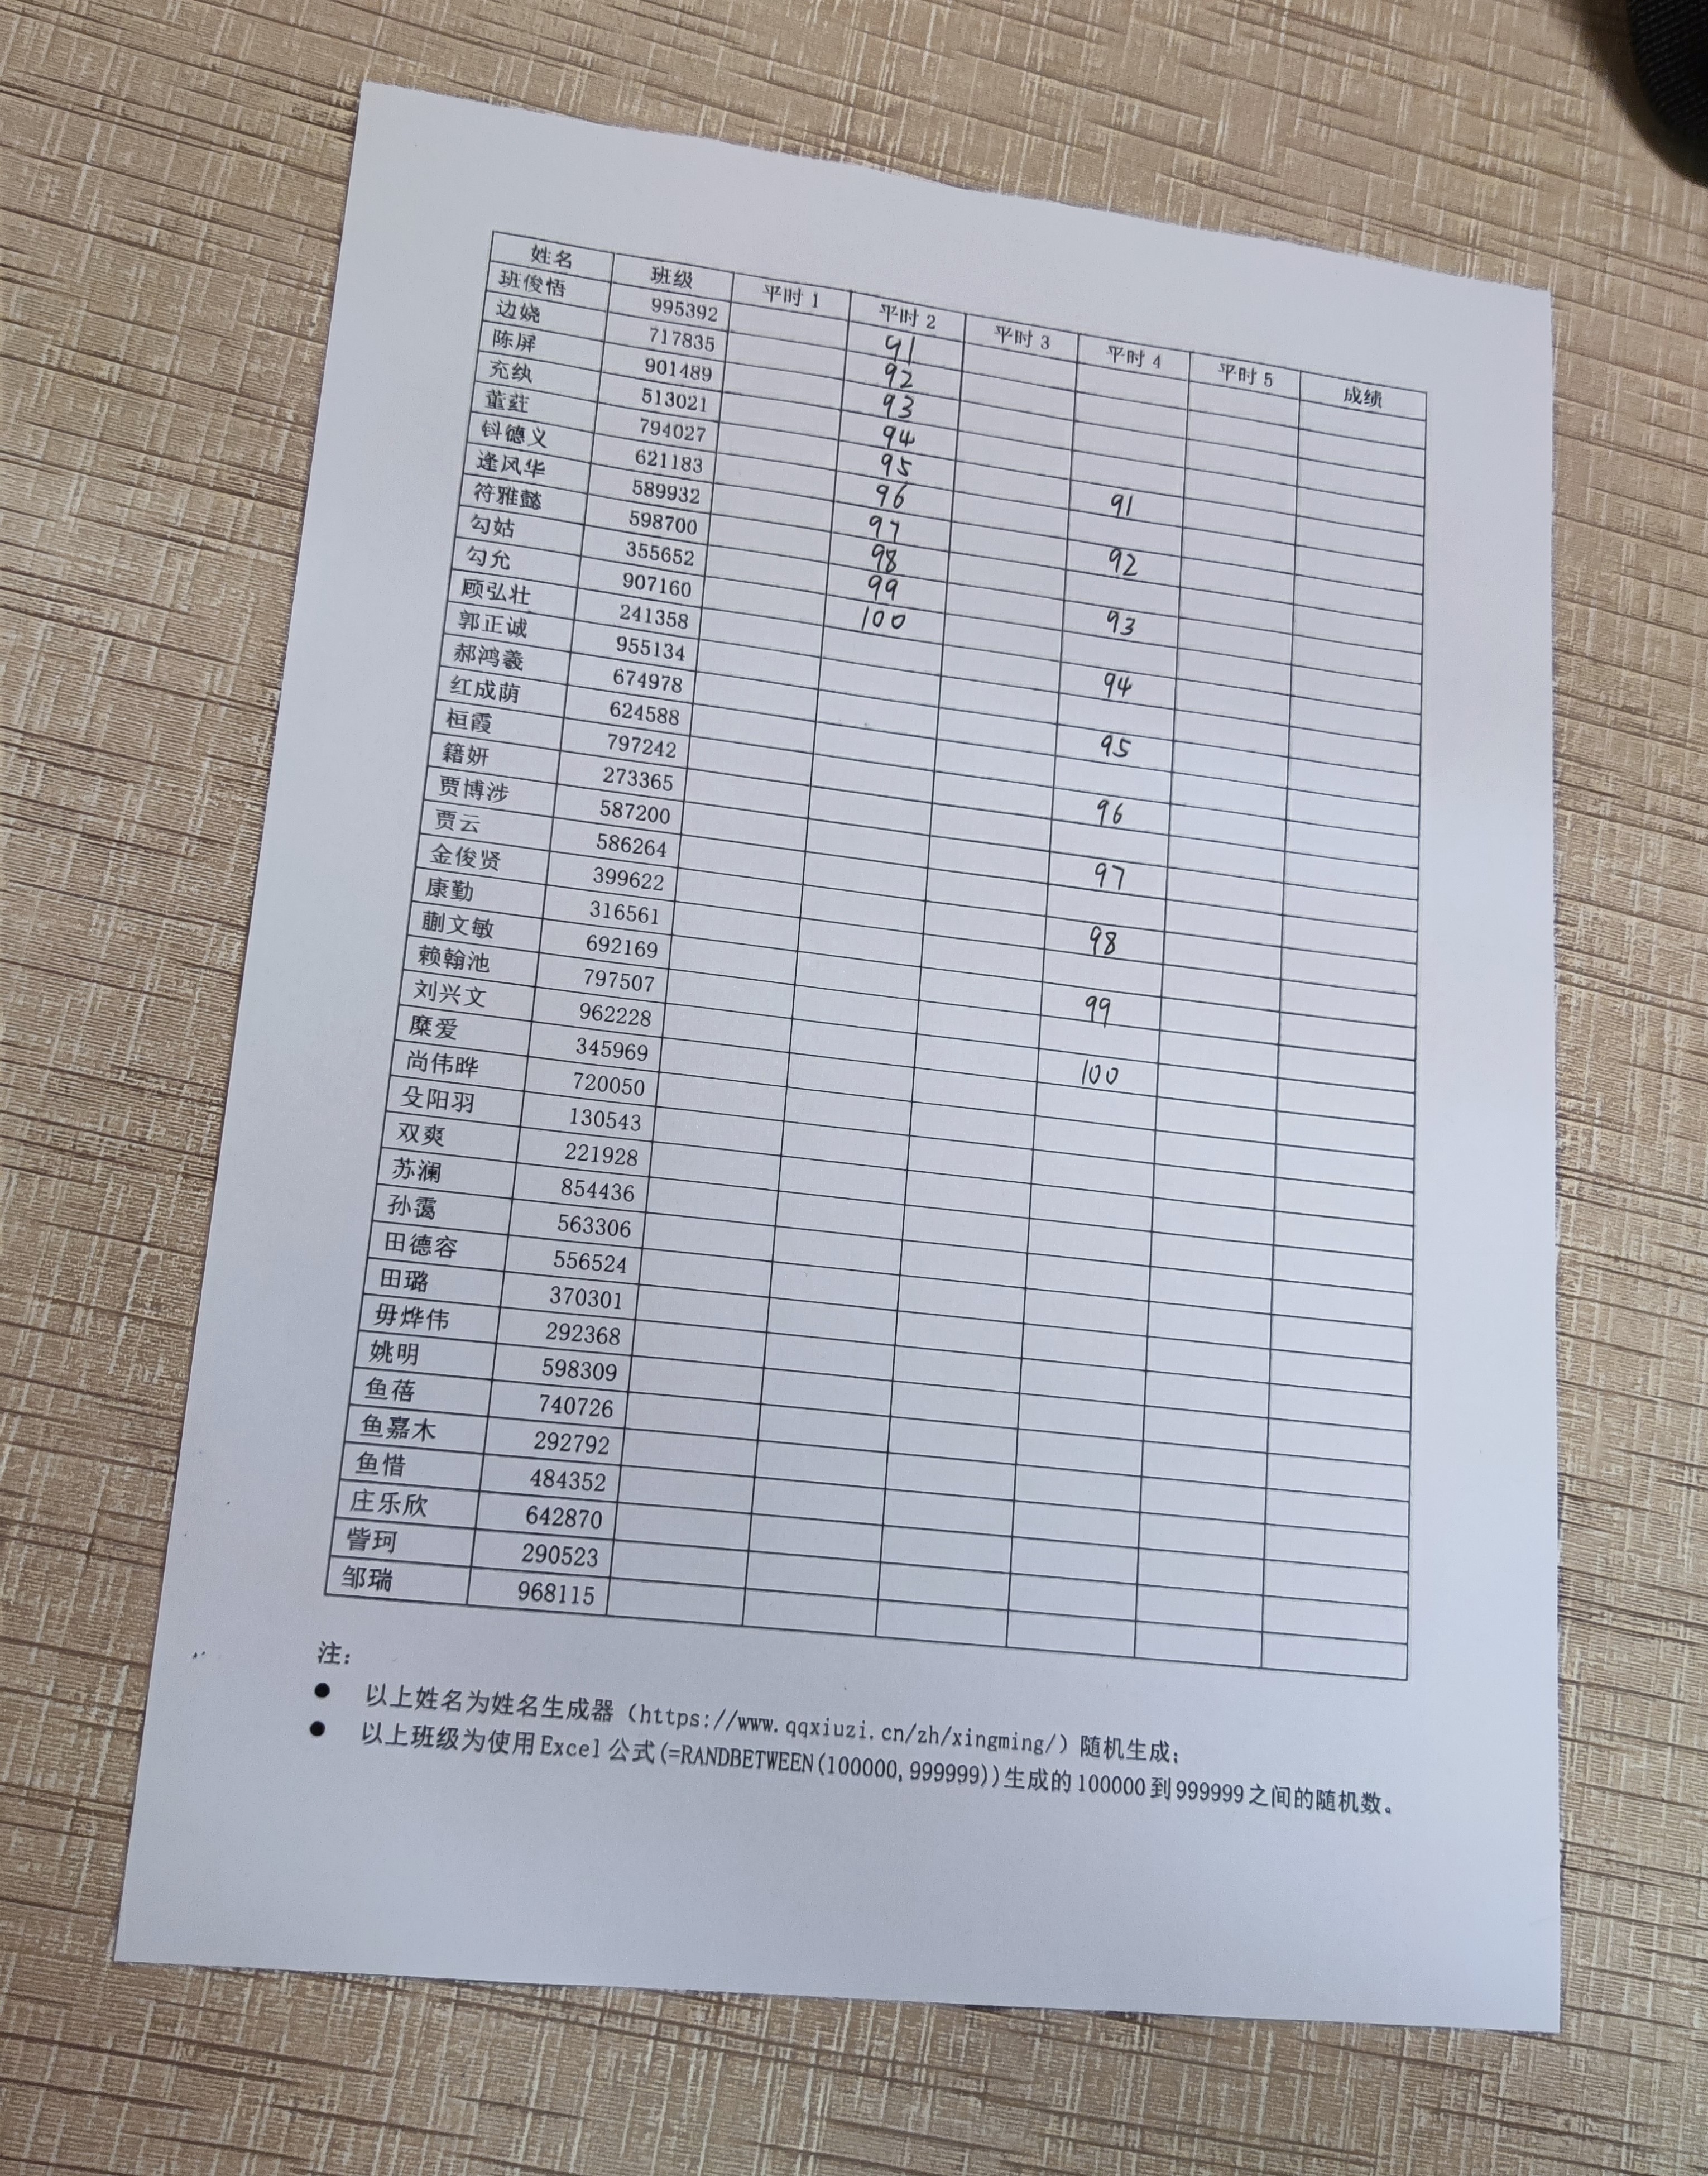 姓名 班级 平时1 平时2 平时3 平时4 平时5 成绩
班俊悟 995392 91
边娆 717835 92
陈屏 901489 93
充纨 513021 94
董莛 794027 95 91
钭德义 621183 96
逄风华 589932 97 92
符雅懿 598700 98
勾姑 355652 99 93
勾允 907160 100
顾弘壮 241358 94
郭正诚 955134
郝鸿羲 674978 95
红成荫 624588
桓霞 797242 96
籍妍 273365
贾博涉 587200 97
贾云 586264
金俊贤 399622 98
康勤 316561
蒯文敏 692169 99
赖翰池 797507
刘兴文 962228 100
糜爱 345969
尚伟晔 720050
殳阳羽 130543
双爽 221928
苏澜 854436
孙霭 563306
田德容 556524
田璐 370301
毋烨伟 292368
姚明 598309
鱼蓓 740726
鱼嘉木 292792
鱼惜 484352
庄乐欣 642870
訾珂 290523
邹瑞 968115
注：
● 以上姓名为姓名生成器（https://www.qqxiuzi.cn/zh/xingming/）随机生成；
● 以上班级为使用Excel公式(=RANDBETWEEN(100000,999999))生成的100000到999999之间的随机数。